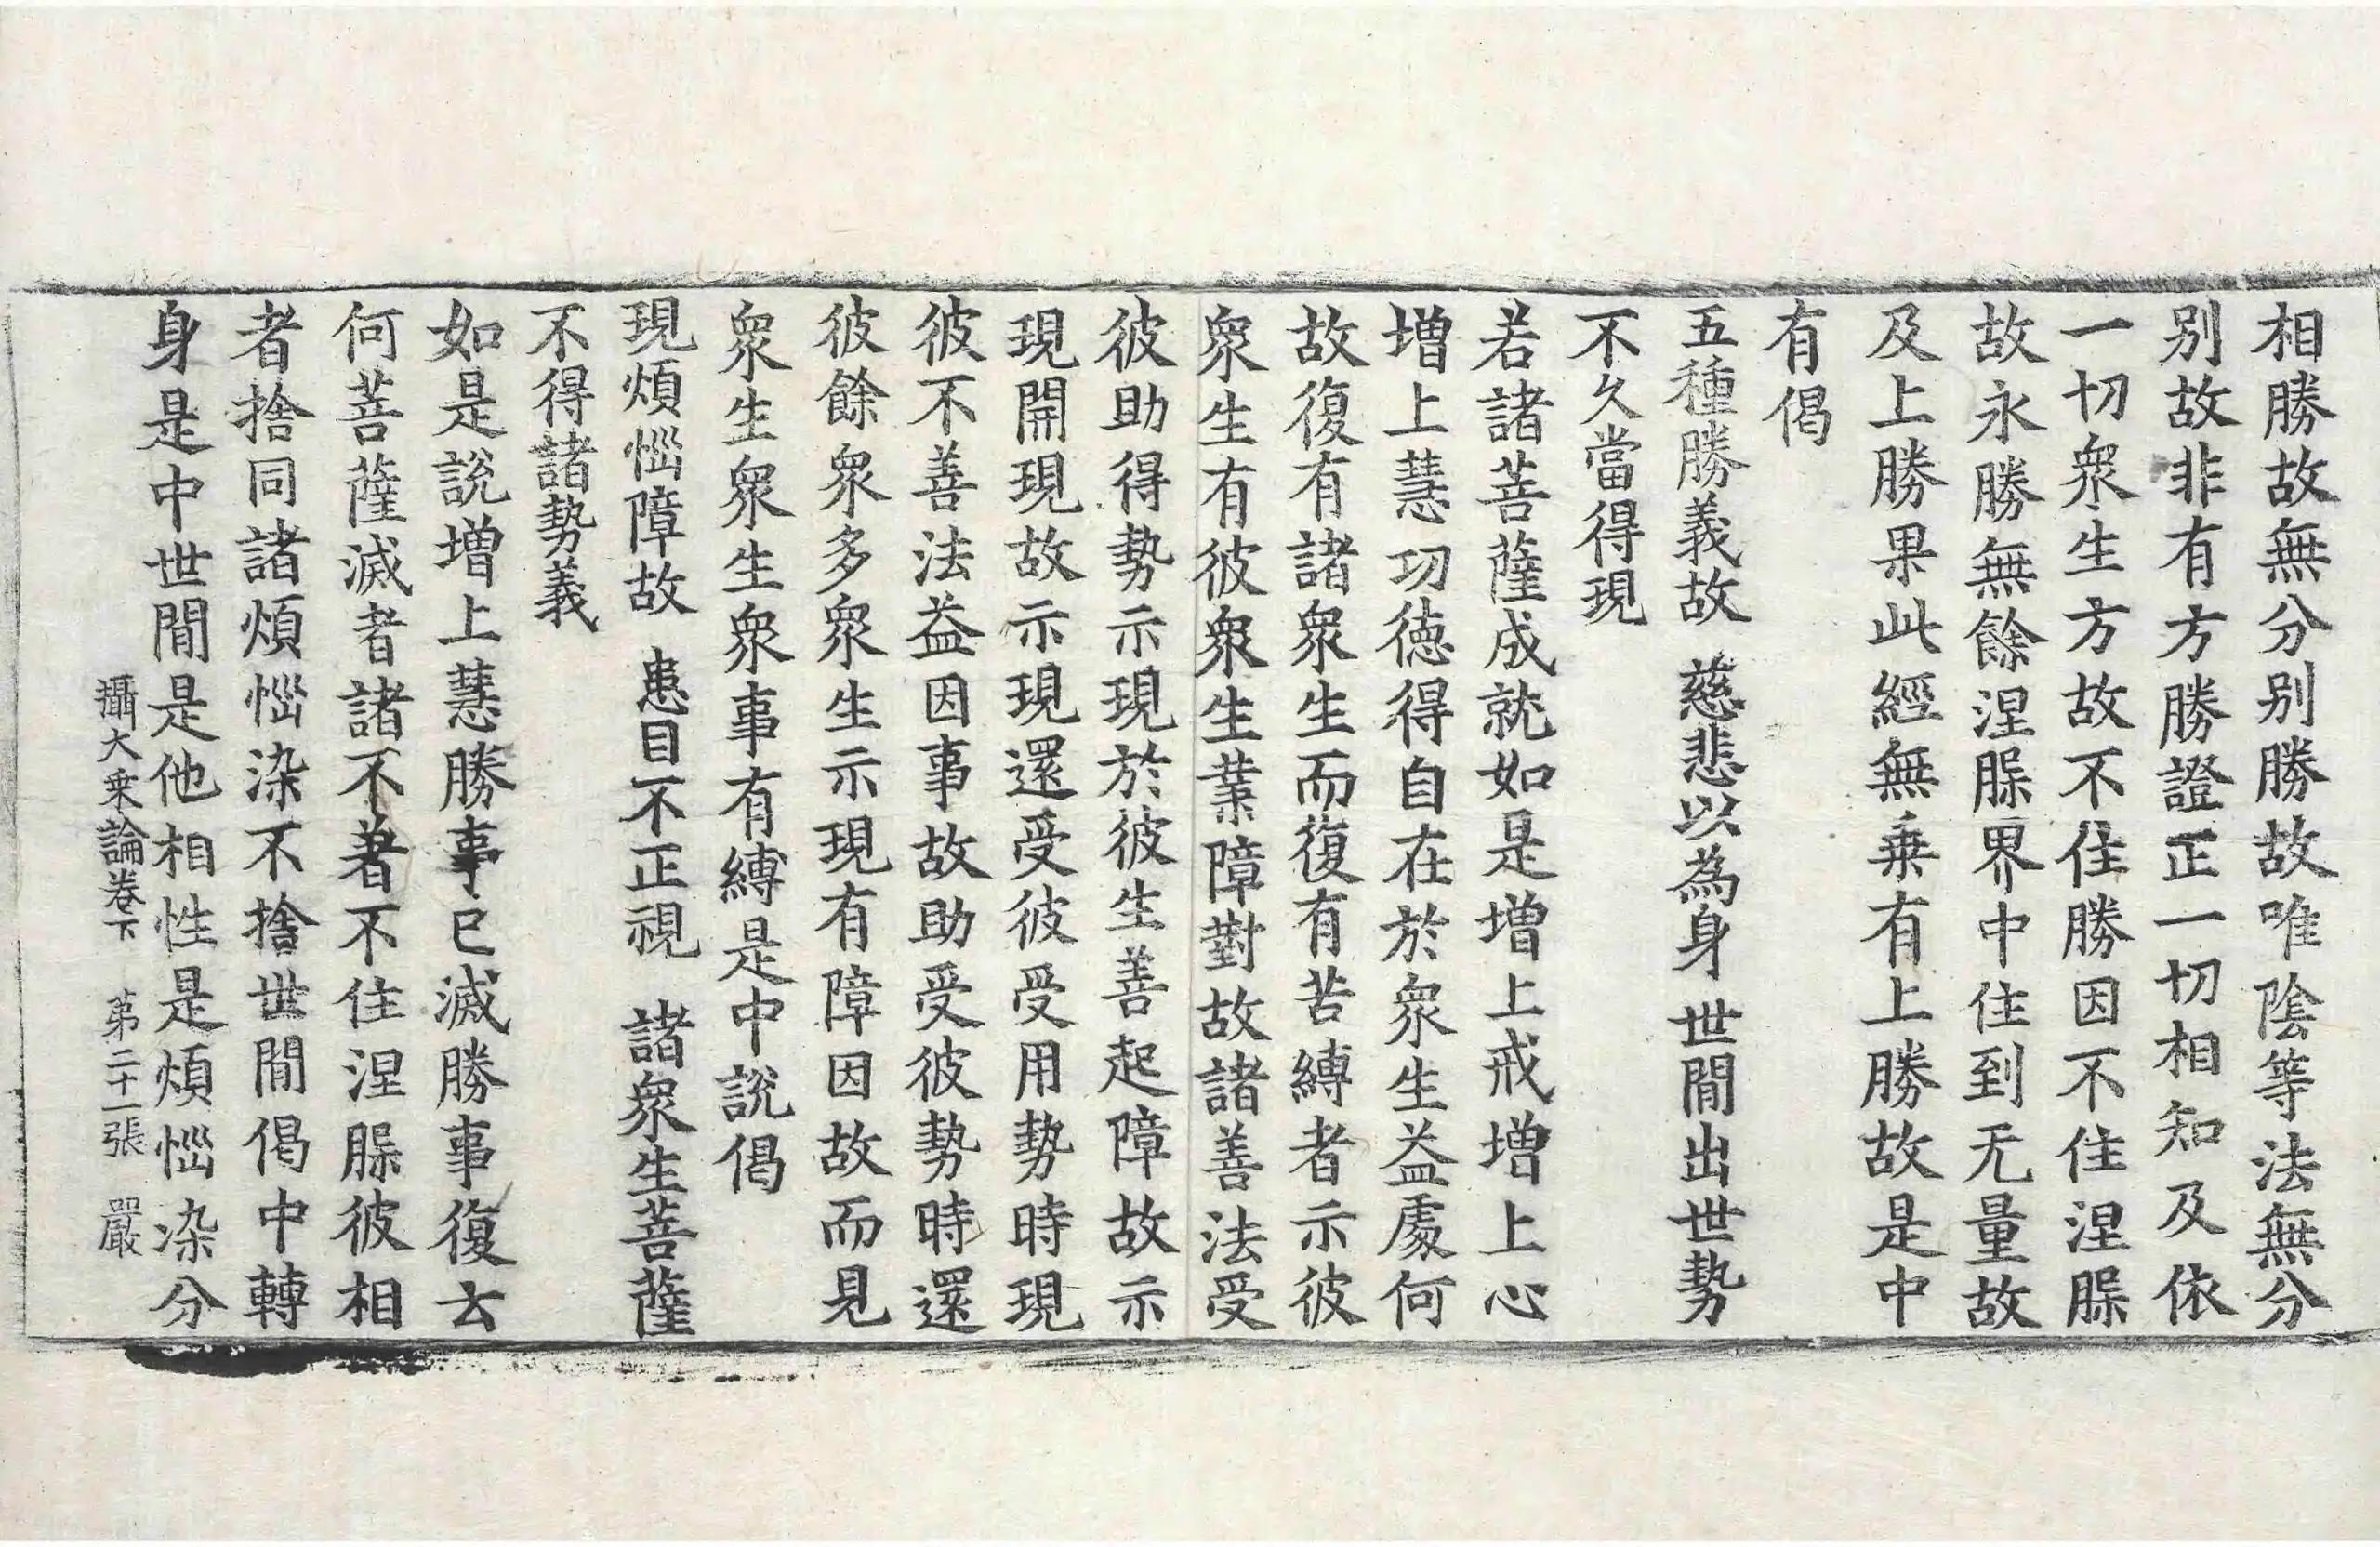 相勝故無分别勝故唯陰等法無分
别故非有方勝證正一切相知及依
一切衆生方故不住勝因不住涅脲
故永勝無餘涅脲界中住到无量故
及上勝果此經無乗有上勝故是中
有偈
五種勝義故 慈悲以為身 世間出世勢
不久當得現
若諸菩薩成就如是增上戒增上心
增上慧功德得自在於衆生益處何
故復有諸衆生而復有苦縛者示彼
衆生有彼衆生業障對故諸善法受
彼助得勢示現於彼生善起障故示
現開現故示現還受彼受用勢時現
彼不善法益因事故助受彼勢時還
彼餘衆多衆生示現有障因故而見
衆生衆生衆事有縛是中說偈
現煩惱障故 患目不正視 諸衆生菩薩
不得諸勢義
如是說增上慧勝事已滅勝事復云
何菩薩滅者諸不著不住涅脲彼相
者捨同諸煩惱染不捨世間偈中轉
身是中世間是他相性是煩惱染分
攝大乗論卷下 第二十一張 嚴